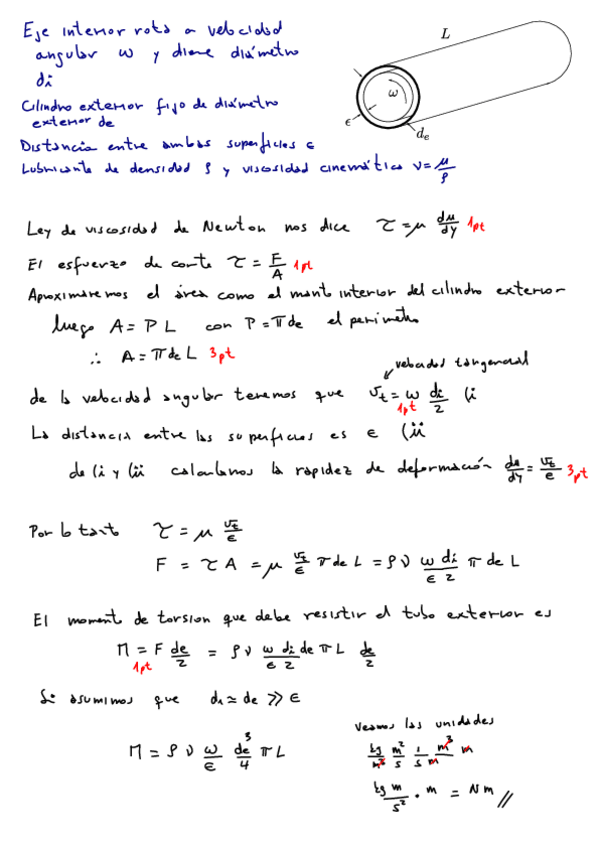 Eje interior rota a velocidad
angular ω y diene diámetro
di
Cilindro exterior fijo de diámetro
exterior de
Distancia entre ambas superficies ϵ
Lubricante de densidad ρ y viscosidad cinemática ν = μ/ρ
L
ω
ϵ
d_e
Ley de viscosidad de Newton nos dice τ = μ du/dy 1pt
El esfuerzo de corte τ = F/A 1pt
Aproximaremos el área como el manto interior del cilindro exterior
luego A = P L con P = π de el perímetro
∴ A = π de L 3pt
velocidad tangencial
de la velocidad angular tenemos que v_t = ω di/2 (i
1pt
La distancia entre las superficies es ϵ (ii
de (i y (ii calculamos la rapidez de deformación du/dy = v_t/ϵ 3pt
Por lo tanto τ = μ v_t/ϵ
F = τ A = μ v_t/ϵ π de L = ρ ν ω di/ϵ 2 π de L
El momento de torsion que debe resistir el tubo exterior es
M = F de/2 = ρ ν ω di/ϵ 2 de π L de/2
1pt
Si asumimos que di ≃ de ≫ ϵ
Veamos las unidades
M = ρ ν ω/ϵ de³/4 π L
kg/m³ m²/s 1/s m³/m m
kg m/s² · m = N m //